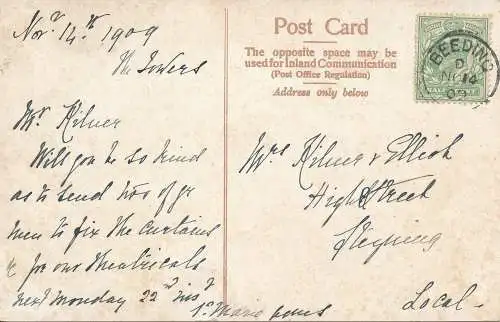 Nov r 14th 1909
The Towers
Mr. Kilner
Will you be so kind
as to send two of yr
men to fix the curtains
&c for our theatricals
next Monday 22nd inst
Sr. Marie
Post Card
The opposite space may be
used for Inland Communication
(Post Office Regulation)
Address only below
BEEDING
D
NO 14
09
Mrs Kilner & Elliott
High Street
Steyning
Local-